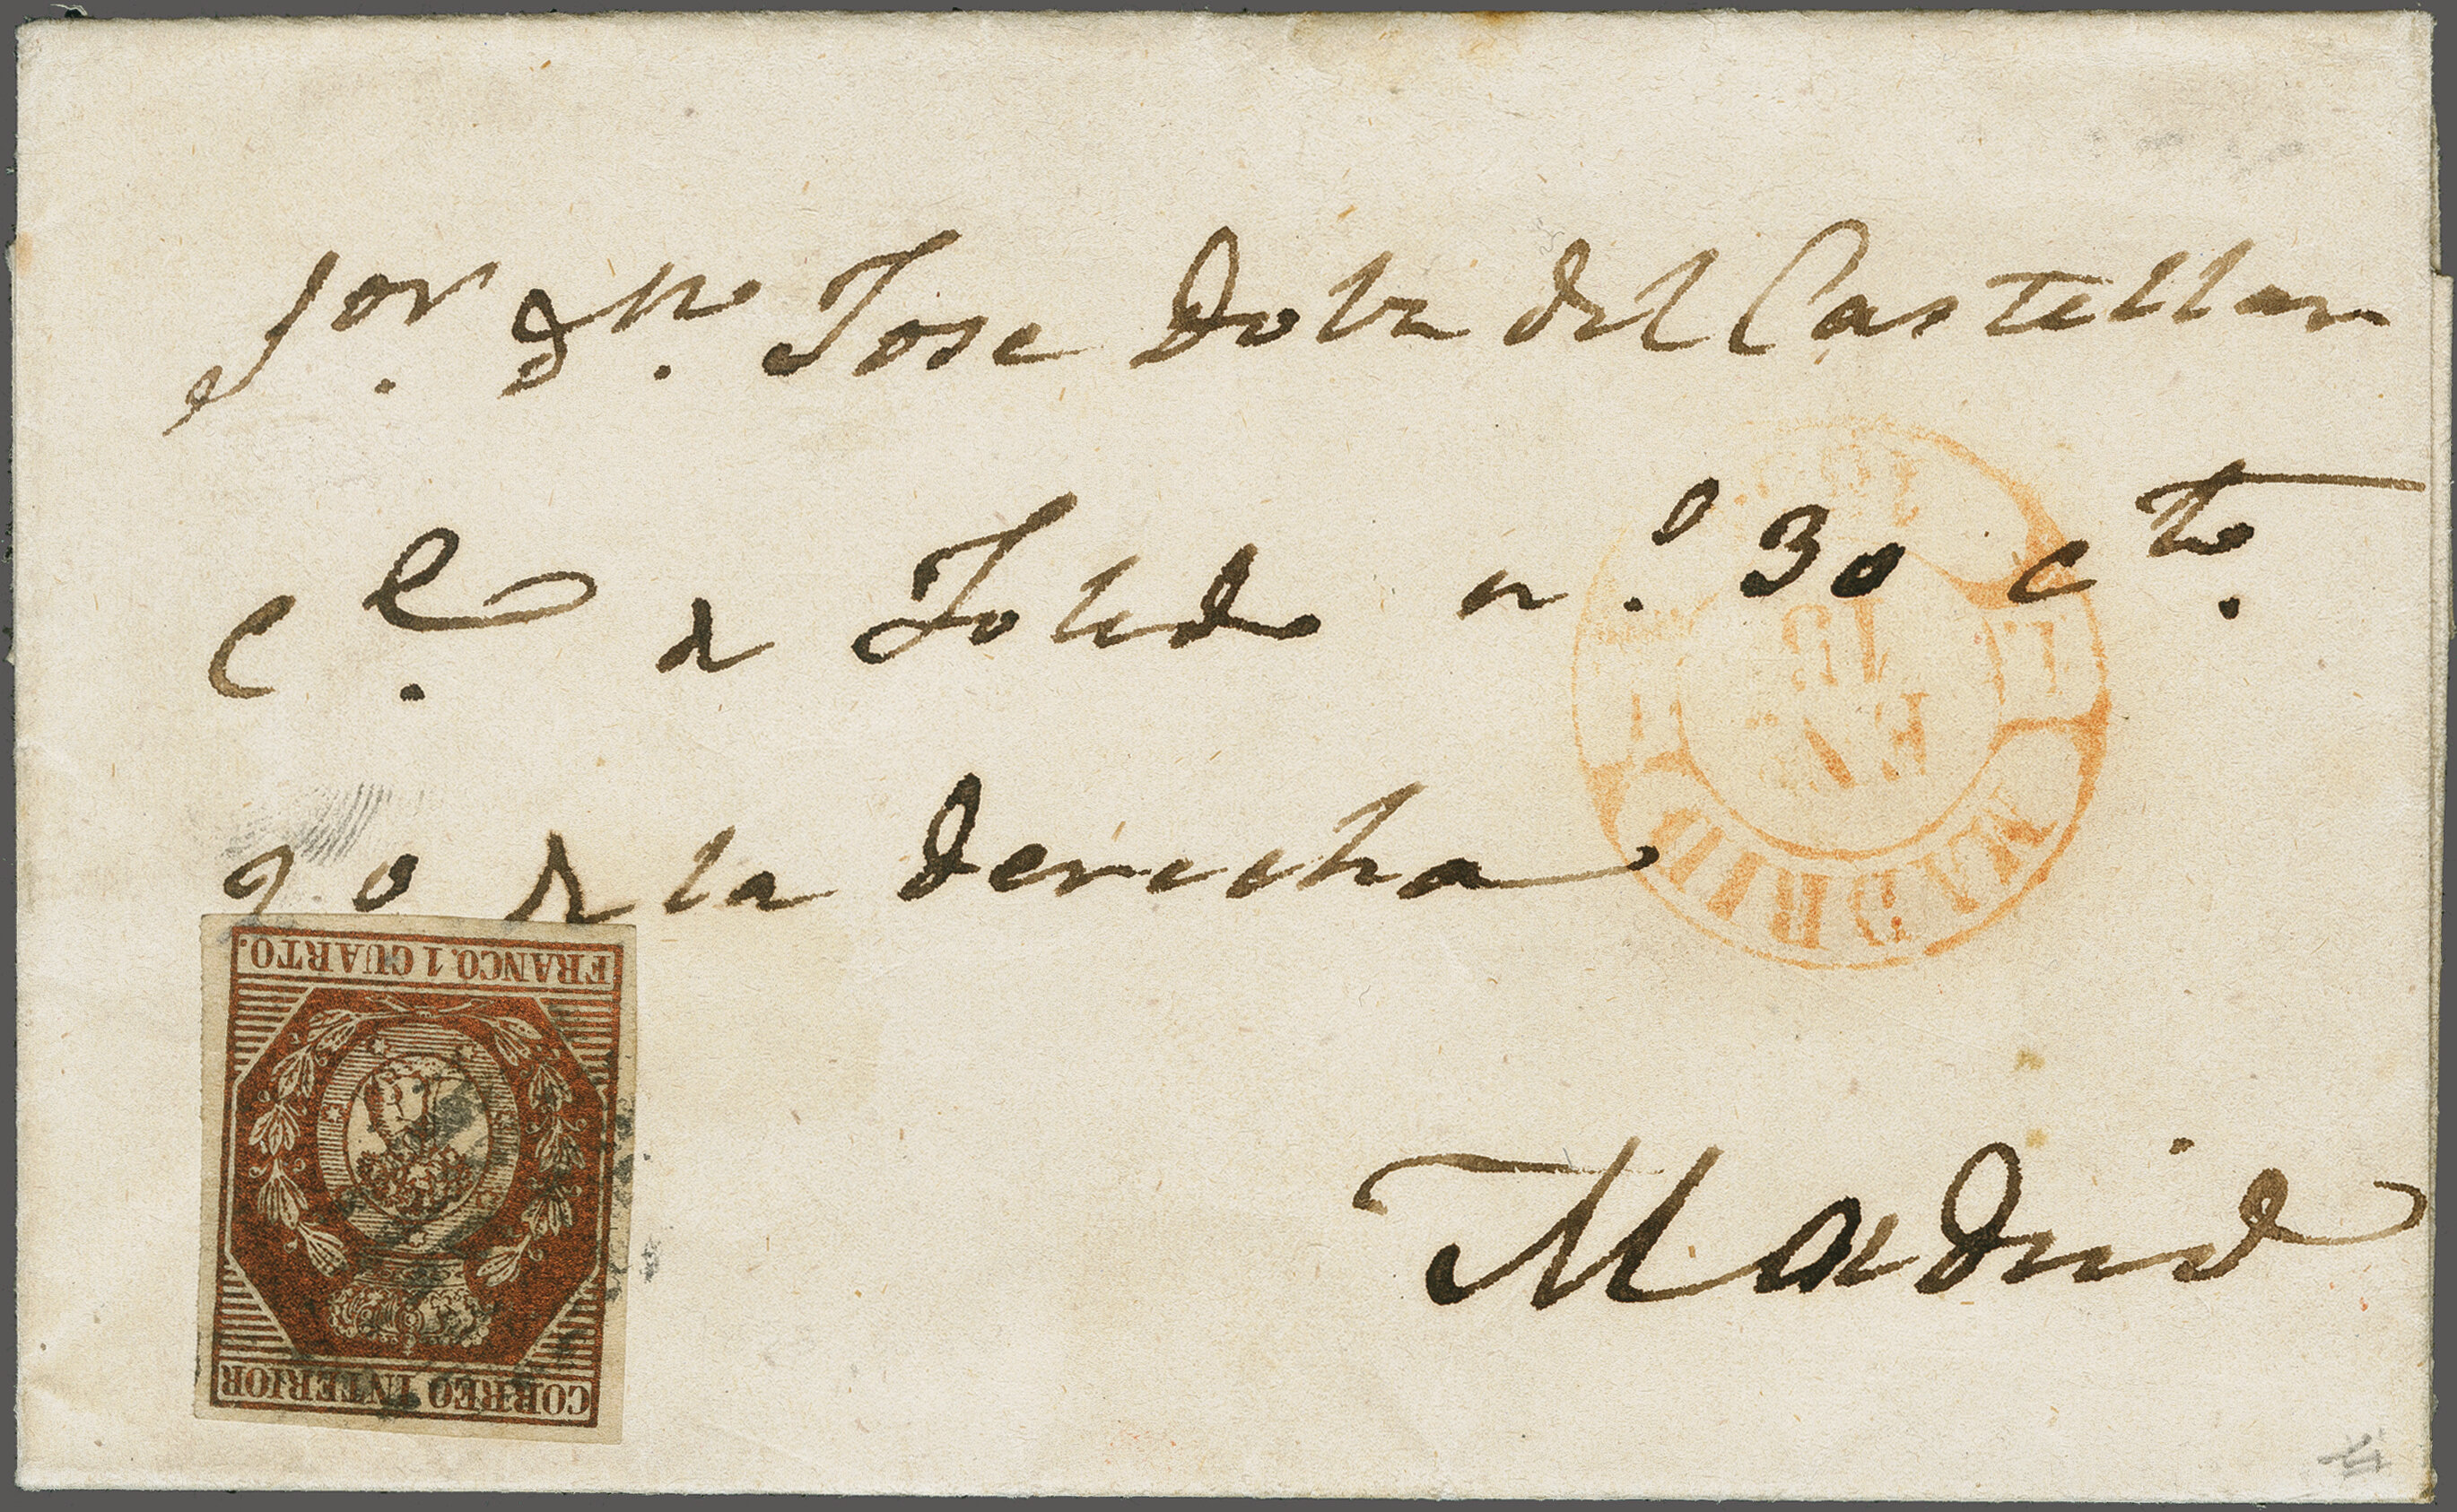 Sor. Dn. Jose Dotr del Castellar
Cle. de Toledo n.o 30 cto.
2o de la derecha
Madrid
MADRID
15
EN
FRANCO. 1 CUARTO.
CORREO INTERIOR